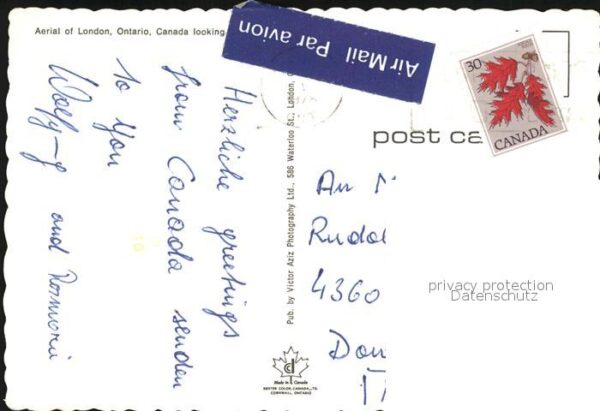 Aerial of London, Ontario, Canada looking
Air Mail Par avion
30
CANADA
post ca
Herzliche greetings
from Canada senden
to You
Wolfg-g and Rosmarie
Pub. by Victor Aziz Photography Ltd., 586 Waterloo St., London,
An
Rudol
4360
Don
privacy protection
Datenschutz
Made in Canada
DEXTER COLOR CANADA LTD.
CORNWALL, ONTARIO